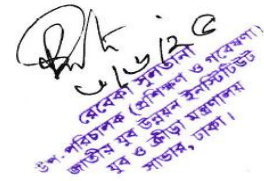 রেবেকা সুলতানা
উপ-পরিচালক (প্রশিক্ষণ ও গবেষণা)
জাতীয় যুব উন্নয়ন ইনস্টিটিউট
যুব ও ক্রীড়া মন্ত্রণালয়
সাভার, ঢাকা।